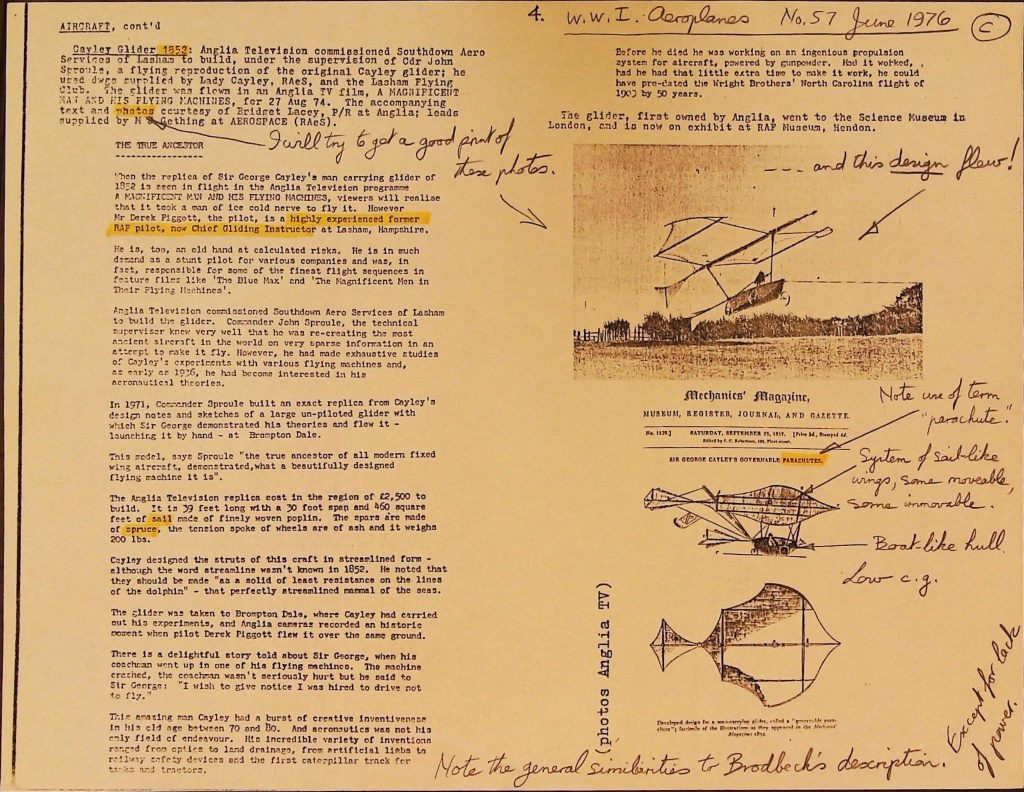 4. W.W.I. Aeroplanes No. 57 June 1976 C
AIRCRAFT, cont'd
Cayley Glider 1852: Anglia Television commissioned Southdown Aero
Services of Lasham to build, under the supervision of Cdr John
Sproule, a flying reproduction of the original Cayley glider; he
used dwgs supplied by Lady Cayley, RAeS, and the Lasham Flying
Club. The glider was flown in an Anglia TV film, A MAGNIFICENT
MAN AND HIS FLYING MACHINES, for 27 Aug 74. The accompanying
text and photos courtesy of Bridget Lacey, P/R at Anglia; leads
supplied by M Gething at AEROSPACE (RAeS).
I will try to get a good print of
these photos.
THE TRUE ANCESTOR
When the replica of Sir George Cayley's man carrying glider of
1852 is seen in flight in the Anglia Television programme
A MAGNIFICENT MAN AND HIS FLYING MACHINES, viewers will realise
that it took a man of ice cold nerve to fly it. However
Mr Derek Piggott, the pilot, is a highly experienced former
RAF pilot, now Chief Gliding Instructor at Lasham, Hampshire.
He is, too, an old hand at calculated risks. He is in much
demand as a stunt pilot for various companies and was, in
fact, responsible for some of the finest flight sequences in
feature films like 'The Blue Max' and 'The Magnificent Men in
Their Flying Machines'.
Anglia Television commissioned Southdown Aero Services of Lasham
to build the glider. Commander John Sproule, the technical
supervisor knew very well that he was re-creating the most
ancient aircraft in the world on very sparse information in an
attempt to make it fly. However, he had made exhaustive studies
of Cayley's experiments with various flying machines and,
as early as 1936, he had become interested in his
aeronautical theories.
In 1971, Commander Sproule built an exact replica from Cayley's
design notes and sketches of a large un-piloted glider with
which Sir George demonstrated his theories and flew it -
launching it by hand - at Brompton Dale.
This model, says Sproule "the true ancestor of all modern fixed
wing aircraft, demonstrated,what a beautifully designed
flying machine it is".
The Anglia Television replica cost in the region of £2,500 to
build. It is 39 feet long with a 30 foot span and 460 square
feet of sail made of finely woven poplin. The spars are made
of spruce, the tension spoke of wheels are of ash and it weighs
200 lbs.
Cayley designed the struts of this craft in streamlined form -
although the word streamline wasn't known in 1852. He noted that
they should be made "as a solid of least resistance on the lines
of the dolphin" - that perfectly streamlined mammal of the seas.
The glider was taken to Brompton Dale, where Cayley had carried
out his experiments, and Anglia cameras recorded an historic
moment when pilot Derek Piggott flew it over the same ground.
There is a delightful story told about Sir George, when his
coachman went up in one of his flying machines. The machine
crashed, the coachman wasn't seriously hurt but he said to
Sir George: "I wish to give notice I was hired to drive not
to fly."
This amazing man Cayley had a burst of creative inventiveness
in his old age between 70 and 80. And aeronautics was not his
only field of endeavour. His incredible variety of inventions
ranged from optics to land drainage, from artificial limbs to
railway safety devices and the first caterpillar track for
tanks and tractors.
Before he died he was working on an ingenious propulsion
system for aircraft, powered by gunpowder. Had it worked,
had he had that little extra time to make it work, he could
have pre-dated the Wright Brothers' North Carolina flight of
1903 by 50 years.
The glider, first owned by Anglia, went to the Science Museum in
London, and is now on exhibit at RAF Museum, Hendon.
--- and this design flew!
Mechanics' Magazine,
MUSEUM, REGISTER, JOURNAL, AND GAZETTE.
SATURDAY, SEPTEMBER 25, 1852.
SIR GEORGE CAYLEY'S GOVERNABLE PARACHUTES.
Note use of term
"parachute."
System of sail-like
wings, some moveable,
some immovable.
Boat-like hull.
Low c.g.
(photos Anglia TV)
Developed design for a man-carrying glider, called a "governable para-
chute"; facsimile of the illustrations as they appeared in the Mechanics'
Magazine 1852.
Note the general similarities to Brodbeck's description.
Except for lack
of power.